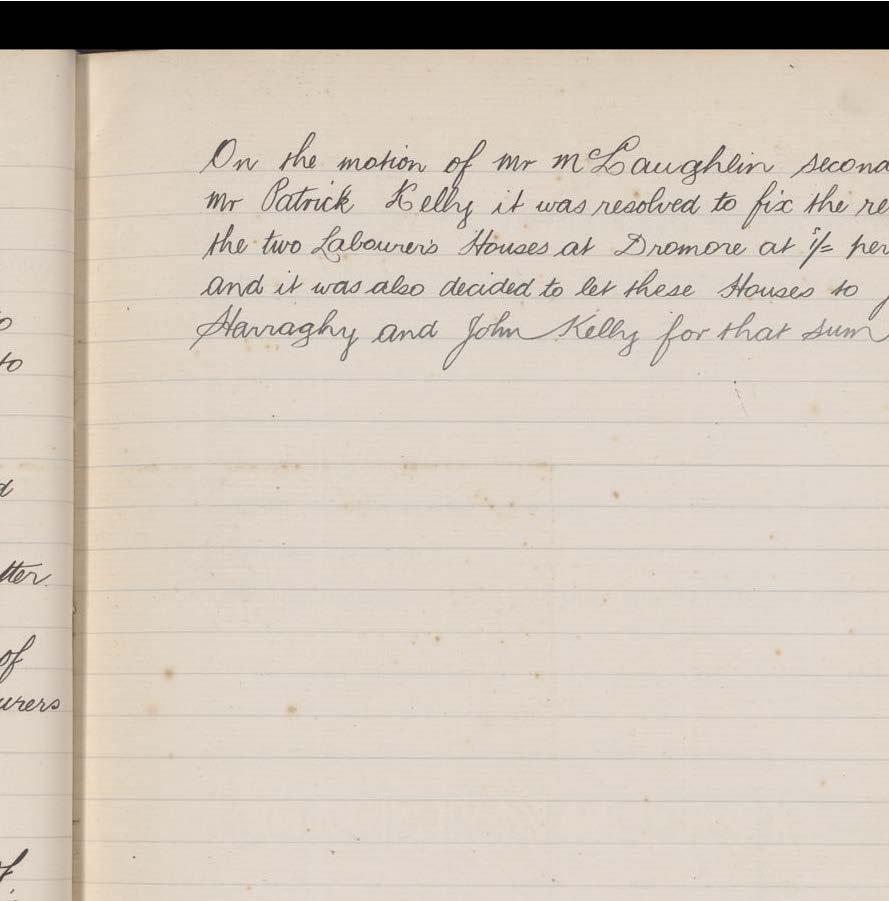 On the motion of Mr McLaughlin second
Mr Patrick Kelly it was resolved to fix the re
the two Labourers Houses at Dromore at 1/= per
and it was also decided to let these Houses to J
Harraghy and John Kelly for that sum
o
to
d
tter.
of
urers
of